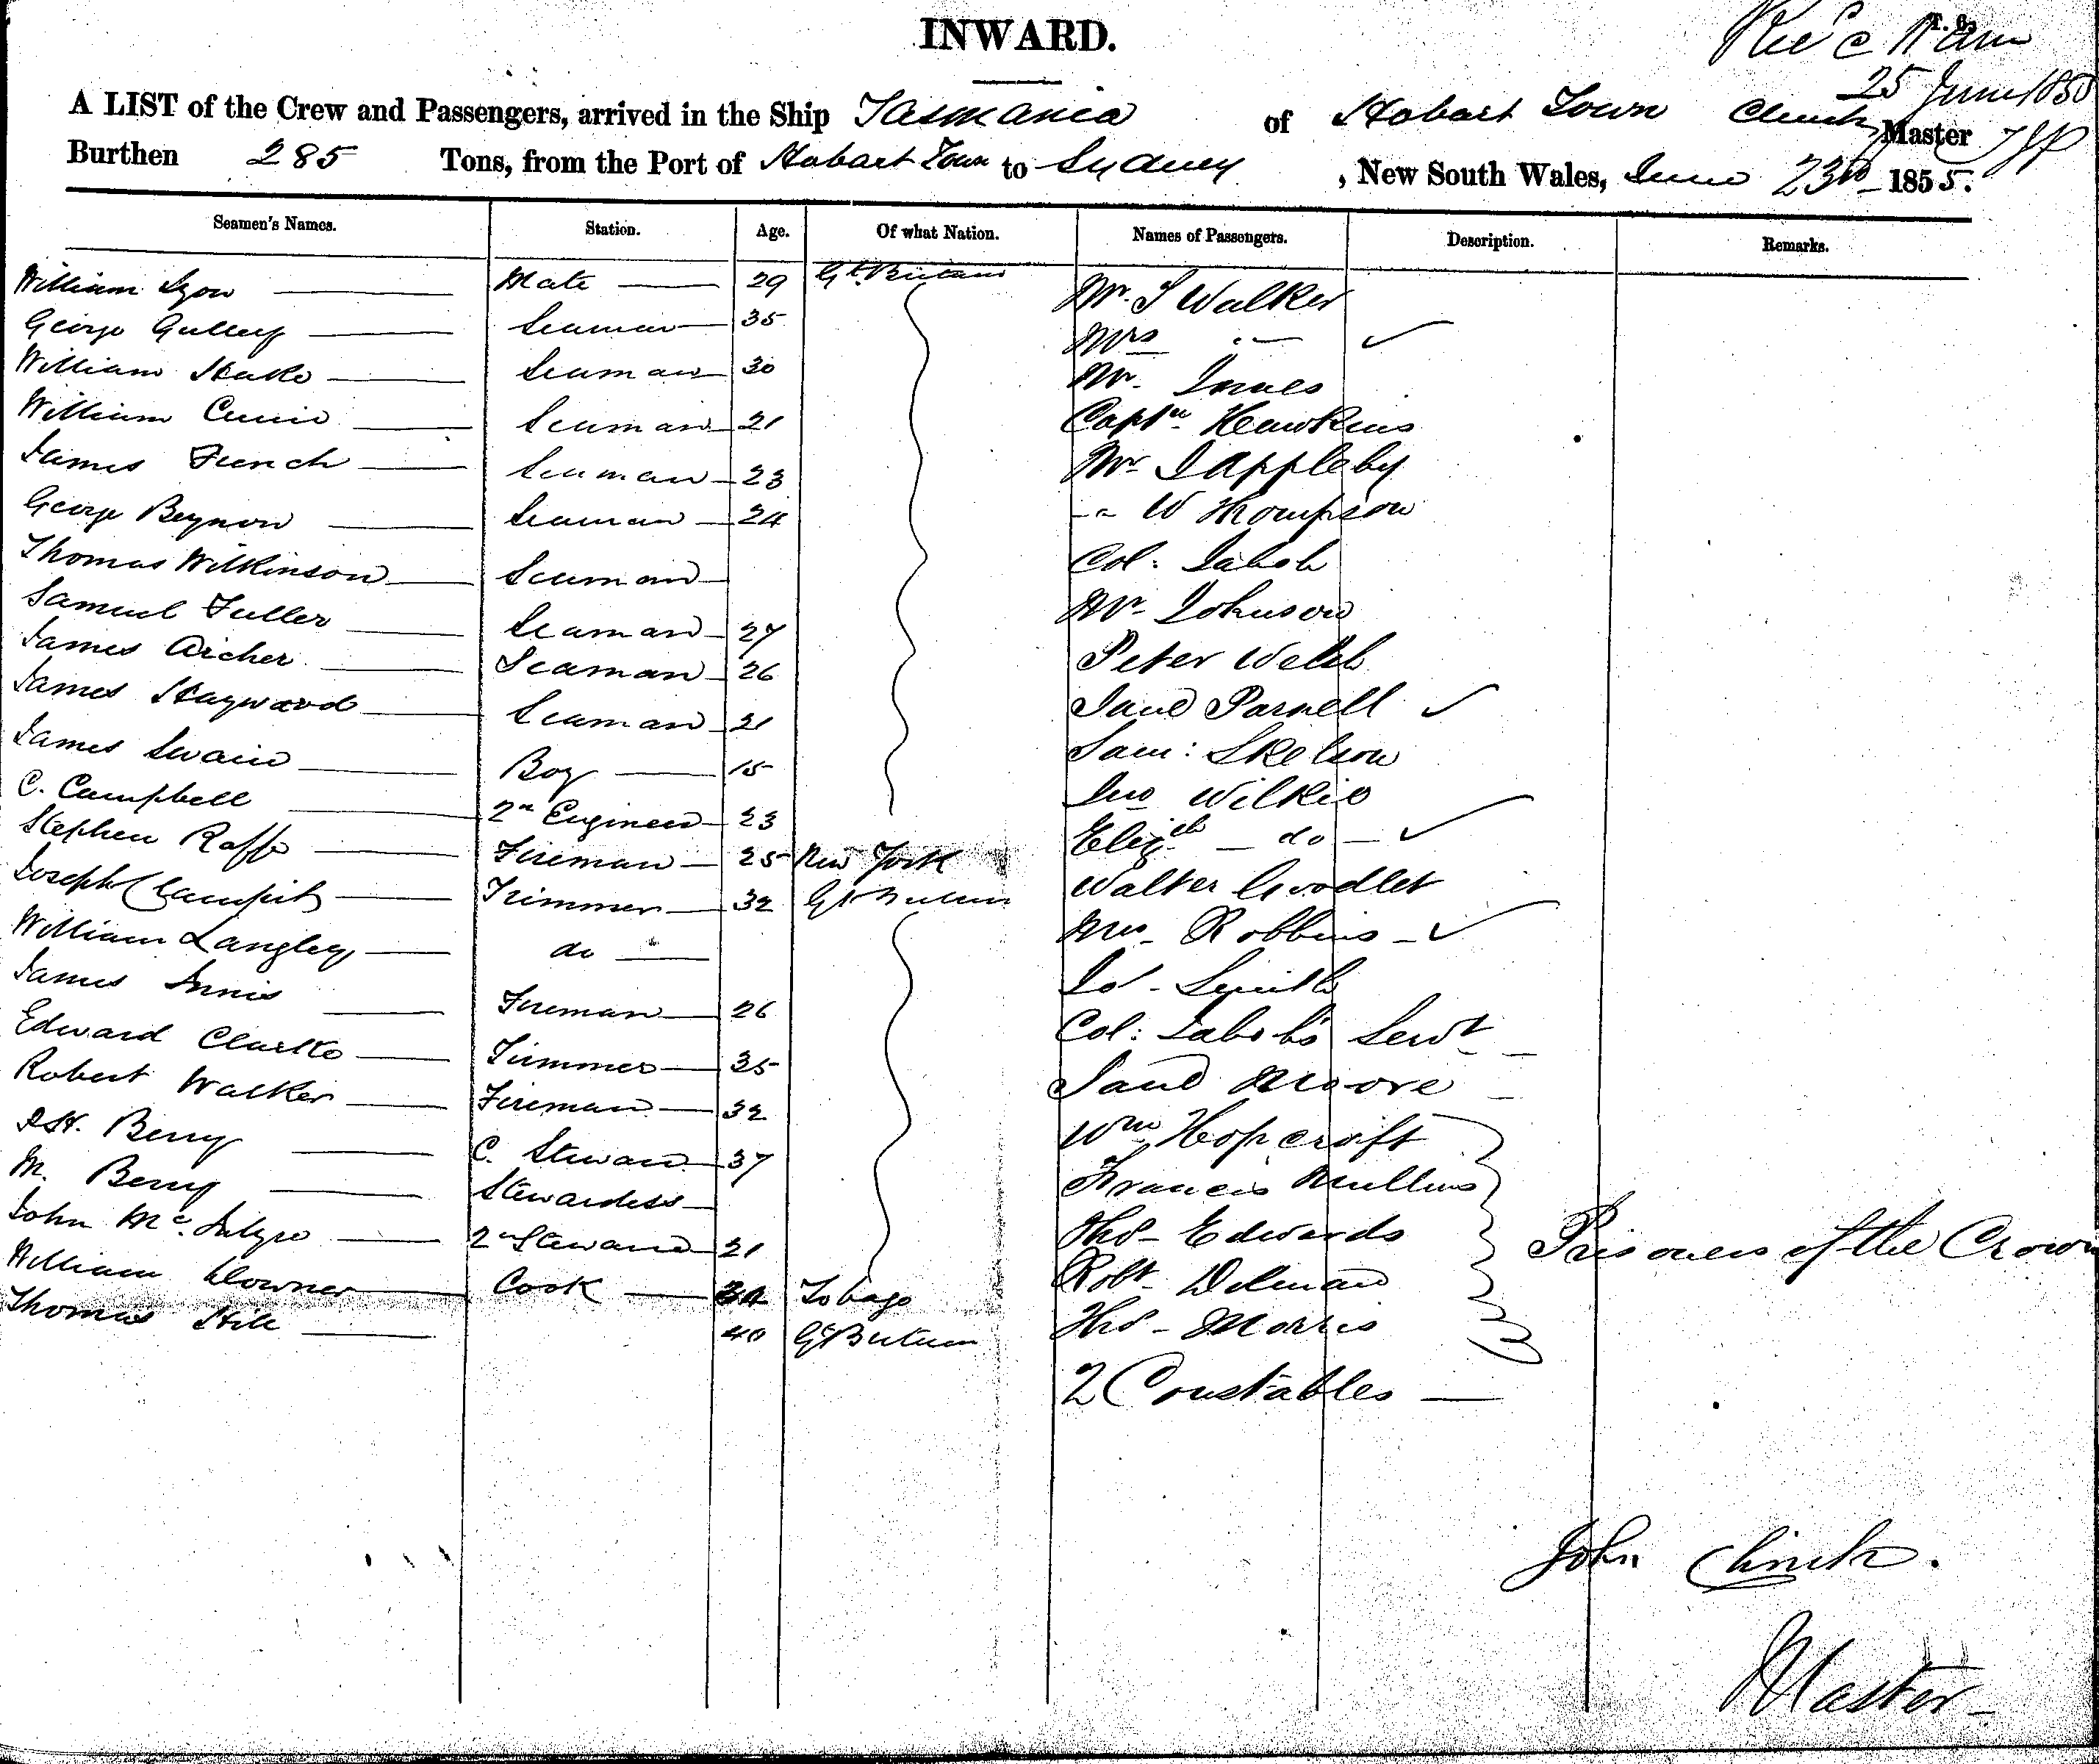 INWARD.
25 June 1855
A LIST of the Crew and Passengers, arrived in the Ship Tasmania of Hobart Town Clinch Master
Burthen 285 Tons, from the Port of Hobart Town to Sydney, New South Wales, June 23rd 1855.
Seamen's Names. Station. Age. Of what Nation. Names of Passengers. Description. Remarks.
William Lyon Mate 29 Gt. Britain Mr. S Walker
George Gulley Seaman 35 Mrs "
William Seaman 30 Mr. Innes
William Seaman 21 Captn Hawkins
James French Seaman 23 Mr J Appleby
George Beynon Seaman 24 " W Thompson
Thomas Wilkinson Seaman Col:
Samuel Fuller Seaman 27 Mr. Johnson
James Archer Seaman 26 Peter Welsh
James Hayward Seaman 21 Jane Parnell
James Swain Boy 15 Sam: Skelson
C. Campbell 2n Engineer 23 Jno Wilkie
Stephen Raffe Fireman 25 New York Elizth do
Joseph Trimmer 32 Gt Britain Walter Goodlet
William Langley do Mrs Robbins
James Innis Fireman 26 Jo. Smith
Edward Clarke Trimmer 35 Col: Servt
Robert Walker Fireman 32 Jane Moore
Berry C. Steward 37 Wm Hopcroft
M. Berry Stewardess Francis Mullins
John McIntyre 2n Steward 21 Thos Edwards Prisoners of the Crown
William Downer Cook 34 Tobago Robt
Thomas Hill 40 Gt Britain Thos Morris
2 Constables
John Clinch.
Master